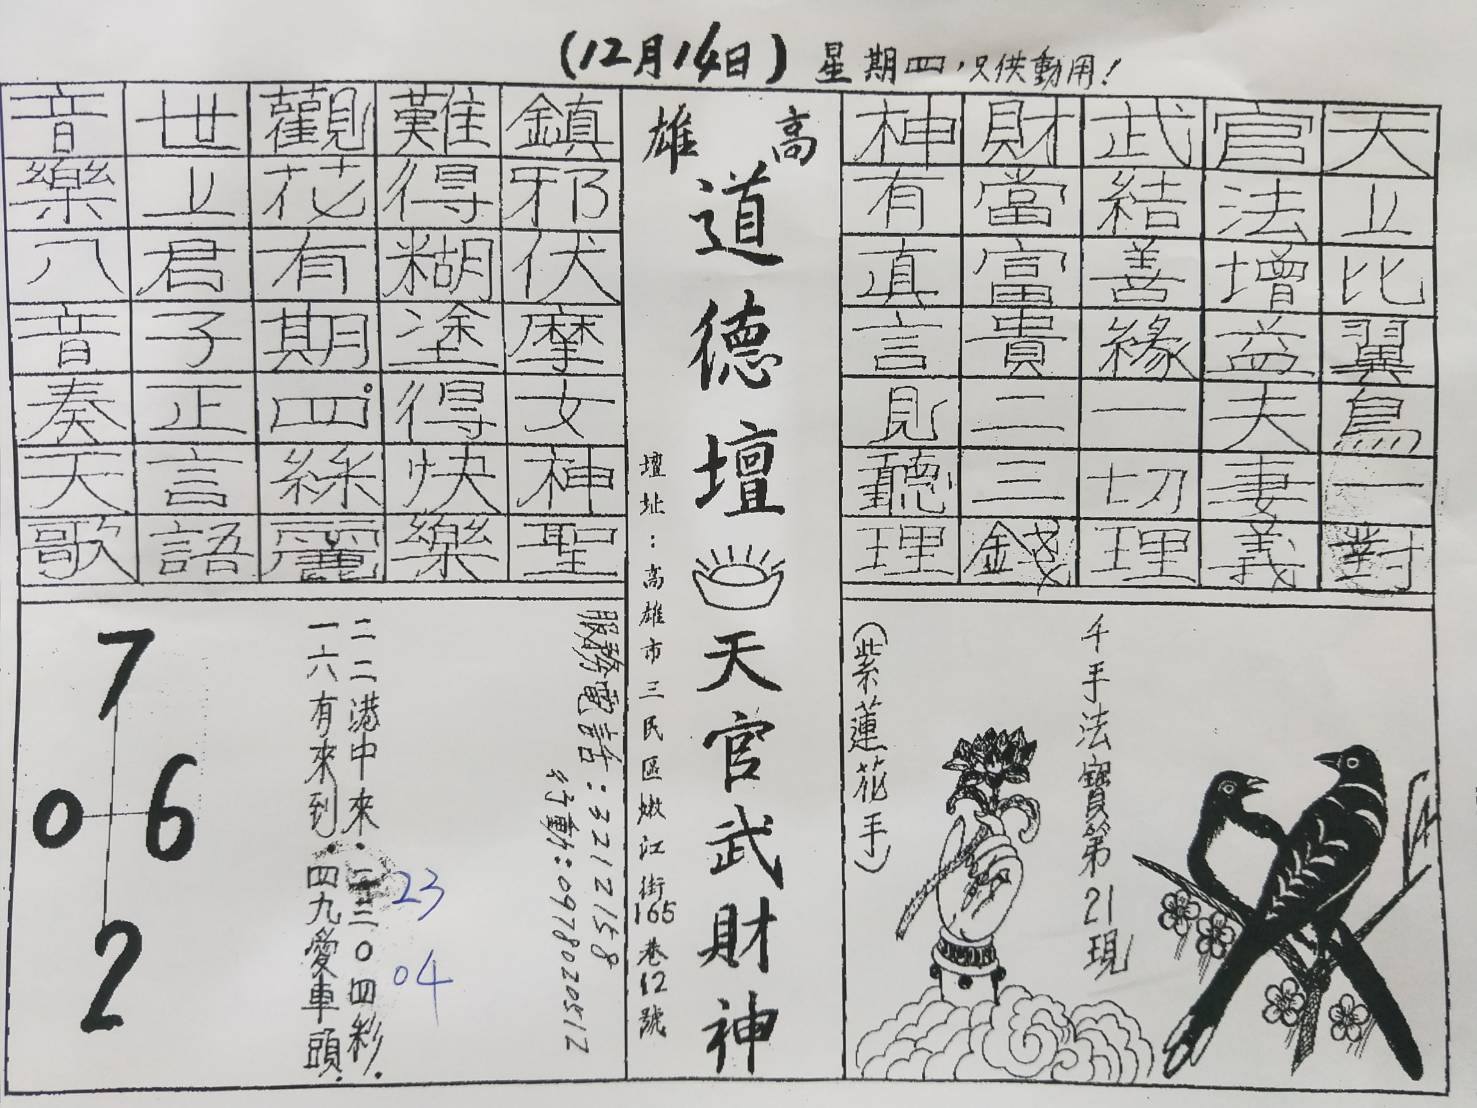 (12月14日) 星期四，只供動用！
天上比翼鳥一對
官法增益夫妻義
武結善緣一切理
財當富貴二三錢
神有真言見聽理
千手法寶第21現
(紫蓮花手)
高雄
道德壇
天官武財神
壇址：高雄市三民區嫩江街165巷12號
鎮邪伏摩女神聖
難得糊塗得快樂
觀花有期四絲麗
世上君子正言語
音樂八音奏天歌
服務電話：3212158
行動：0978020512
二二港中來．二三０四彩．
一六有來到．四九愛車頭．
23
04
7
0 6
2